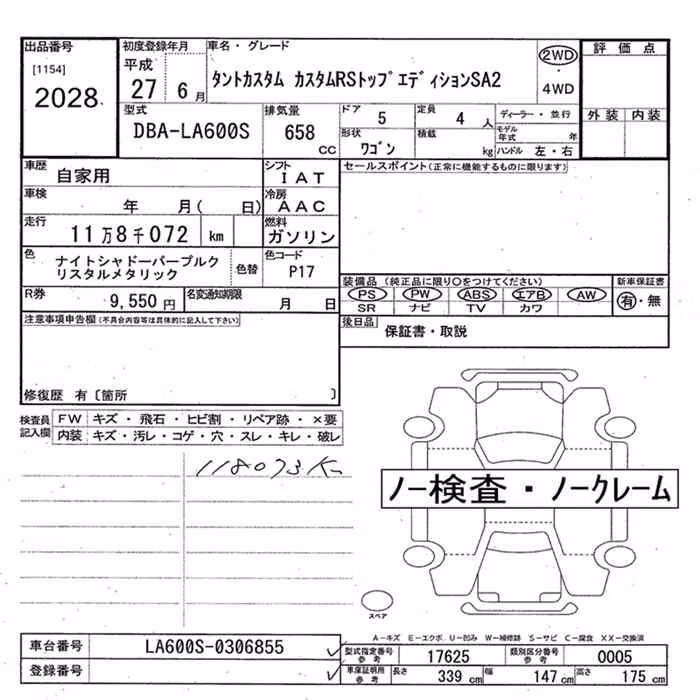 出品番号
[1154]
2028
初度登録年月
平成
27 6 月
車名・グレード
タントカスタム カスタムRSトップエディションSA2
2WD
・
4WD
評価点
外装 内装
型式
DBA-LA600S
排気量
658
CC
ドア
5
定員
4 人
ディーラー・並行
形状
ワゴン
積載
kg
モデル
年式 年
ハンドル 左・右
車歴
自家用
シフト
IAT
セールスポイント(正常に機能するものに限ります)
車検
年 月( 日)
冷房
AAC
走行
11万8千072 km
燃料
ガソリン
色
ナイトシャドーパープルク
リスタルメタリック
色替
色コード
P17
装備品(純正品に限り○をつけてください)
新車保証書
PS PW ABS エアB AW
有・無
SR ナビ TV カワ
R券
9,550 円
名変通知期限
月 日
後日品
保証書・取説
注意事項申告欄(不具合内容等は具体的に記入して下さい)
修復歴 有〔箇所 〕
検査員
記入欄
FW キズ・飛石・ヒビ割・リペア跡・×要
内装 キズ・汚レ・コゲ・穴・スレ・キレ・破レ
118073K
ノー検査・ノークレーム
スペア
A-キズ E-エクボ U-凹み W-補修跡 S-サビ C-腐食 XX-交換済
車台番号
LA600S-0306855
登録番号
型式指定番号
参考
17625
類別区分番号
参考
0005
車庫証明用
参考
長さ 339 cm 幅 147 cm 高さ 175 cm